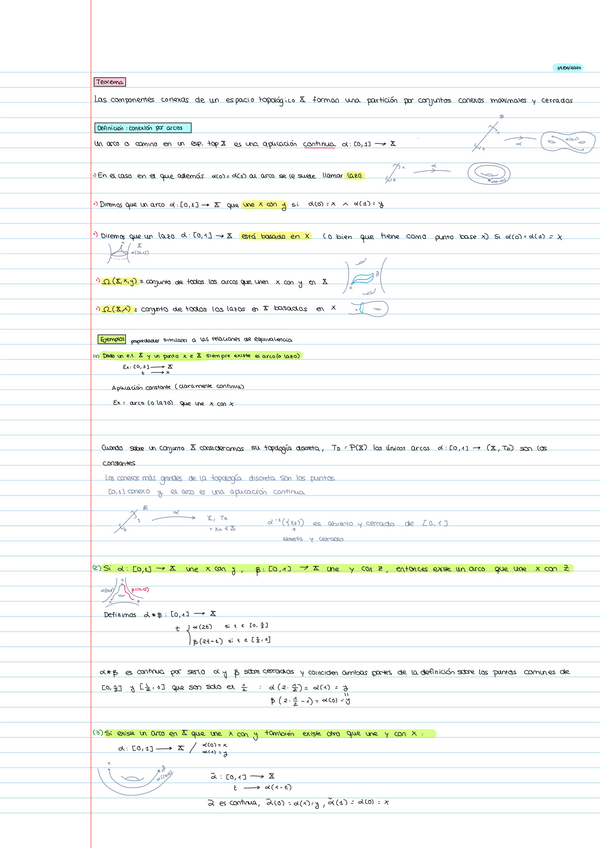 Teorema
Las componentes conexas de un espacio topológico X forman una partición por conjuntos conexos maximales y cerrados
Definición: conexión por arcos
Un arco o camino en un esp. top X es una aplicación continua α: [0,1] → X
·) En el caso en el que además α(0) = α(1) al arco se le suele llamar lazo
·) Diremos que un arco α: [0,1] → X que une x con y si α(0) = x ∧ α(1) = y
·) Diremos que un lazo α: [0,1] → X está basado en x (o bien que tiene como punto base x) si α(0) = α(1) = x
·) Ω(X,x,y) = conjunto de todos los arcos que unen x con y en X
·) Ω(X,x) = conjunto de todos los lazos en X basados en x
Ejemplos propiedades similares a las relaciones de equivalencia
(1) Dado un e.t. X y un punto x ∈ X siempre existe el arco (o lazo)
Ex: [0,1] → X
t → x
Aplicación constante (claramente continua)
Ex = arco (o lazo) que une x con x
Cuando sobre un conjunto X consideramos su topología discreta, T_D = P(X) los únicos arcos α: [0,1] → (X, T_D) son las
constantes
Los conexos más grandes de la topología discreta son los puntos
[0,1] conexo y el arco es una aplicación continua
R α X, T_D
α⁻¹({x₀}) es abierto y cerrado de [0,1]
abierto y cerrado
(2) Si α: [0,1] → X une x con y, β: [0,1] → X une y con z, entonces existe un arco que une x con z
Definimos α*β: [0,1] → X
t { α(2t) si t ∈ [0, 1/2]
β(2t-1) si t ∈ [1/2, 1]
α*β es continua por serlo α y β sobre cerrados y coinciden ambas partes de la definición sobre los puntos comunes de
[0, 1/2] y [1/2, 1] que son solo el 1/2 : α(2·1/2) = α(1) = y
β(2·1/2 - 1) = α(0) = y
(3) Si existe un arco en X que une x con y también existe otro que une y con x:
α: [0,1] → X / α(0) = x
α(1) = y
α̃: [0,1] → X
t → α(1-t)
α̃ es continua, α̃(0) = α(1) = y, α̃(1) = α(0) = x